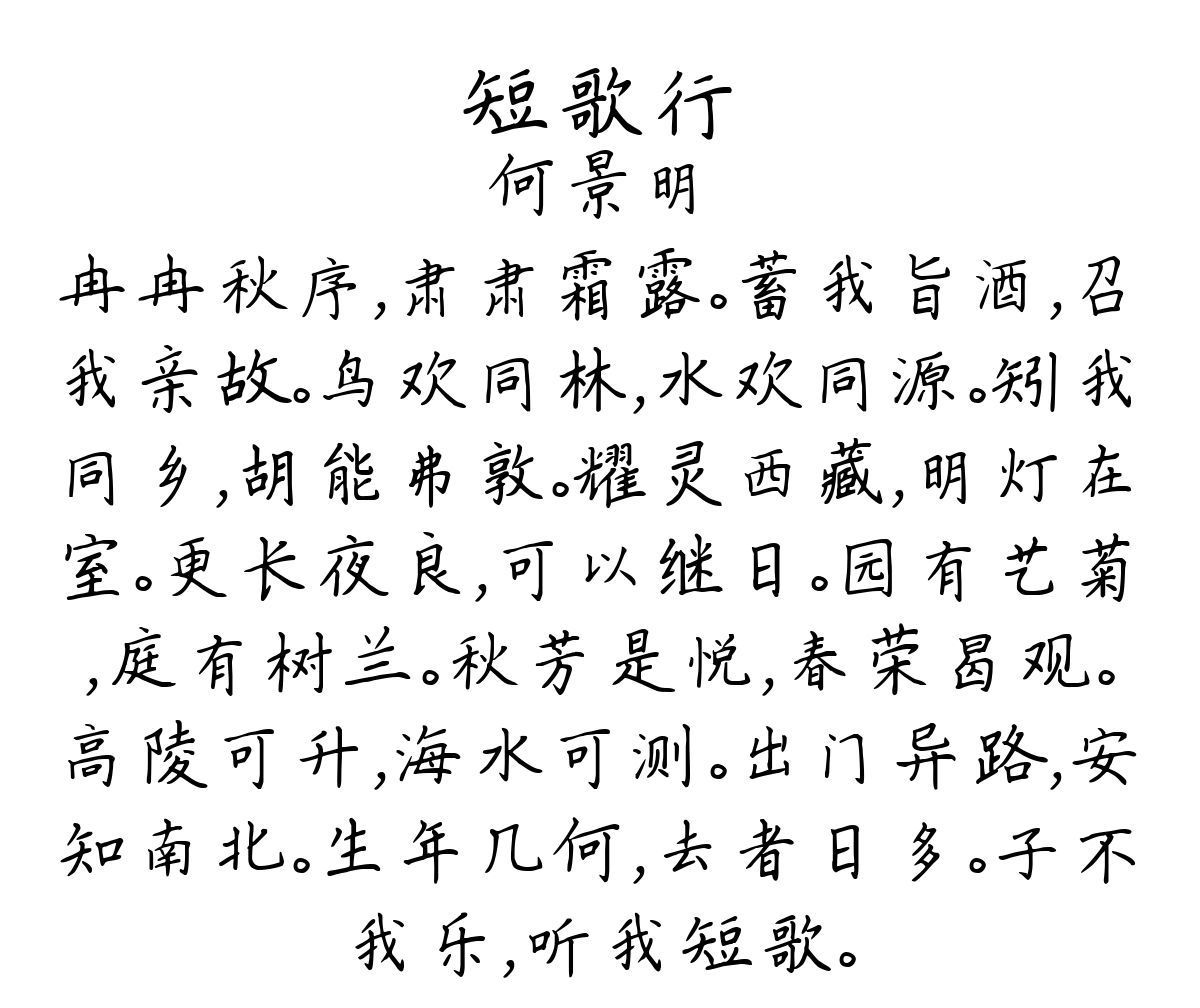 短歌行
何景明
冉冉秋序,肃肃霜露。蓄我旨酒,召
我亲故。鸟欢同林,水欢同源。矧我
同乡,胡能弗敦。耀灵西藏,明灯在
室。更长夜良,可以继日。园有艺菊
,庭有树兰。秋芳是悦,春荣曷观。
高陵可升,海水可测。出门异路,安
知南北。生年几何,去者日多。子不
我乐,听我短歌。